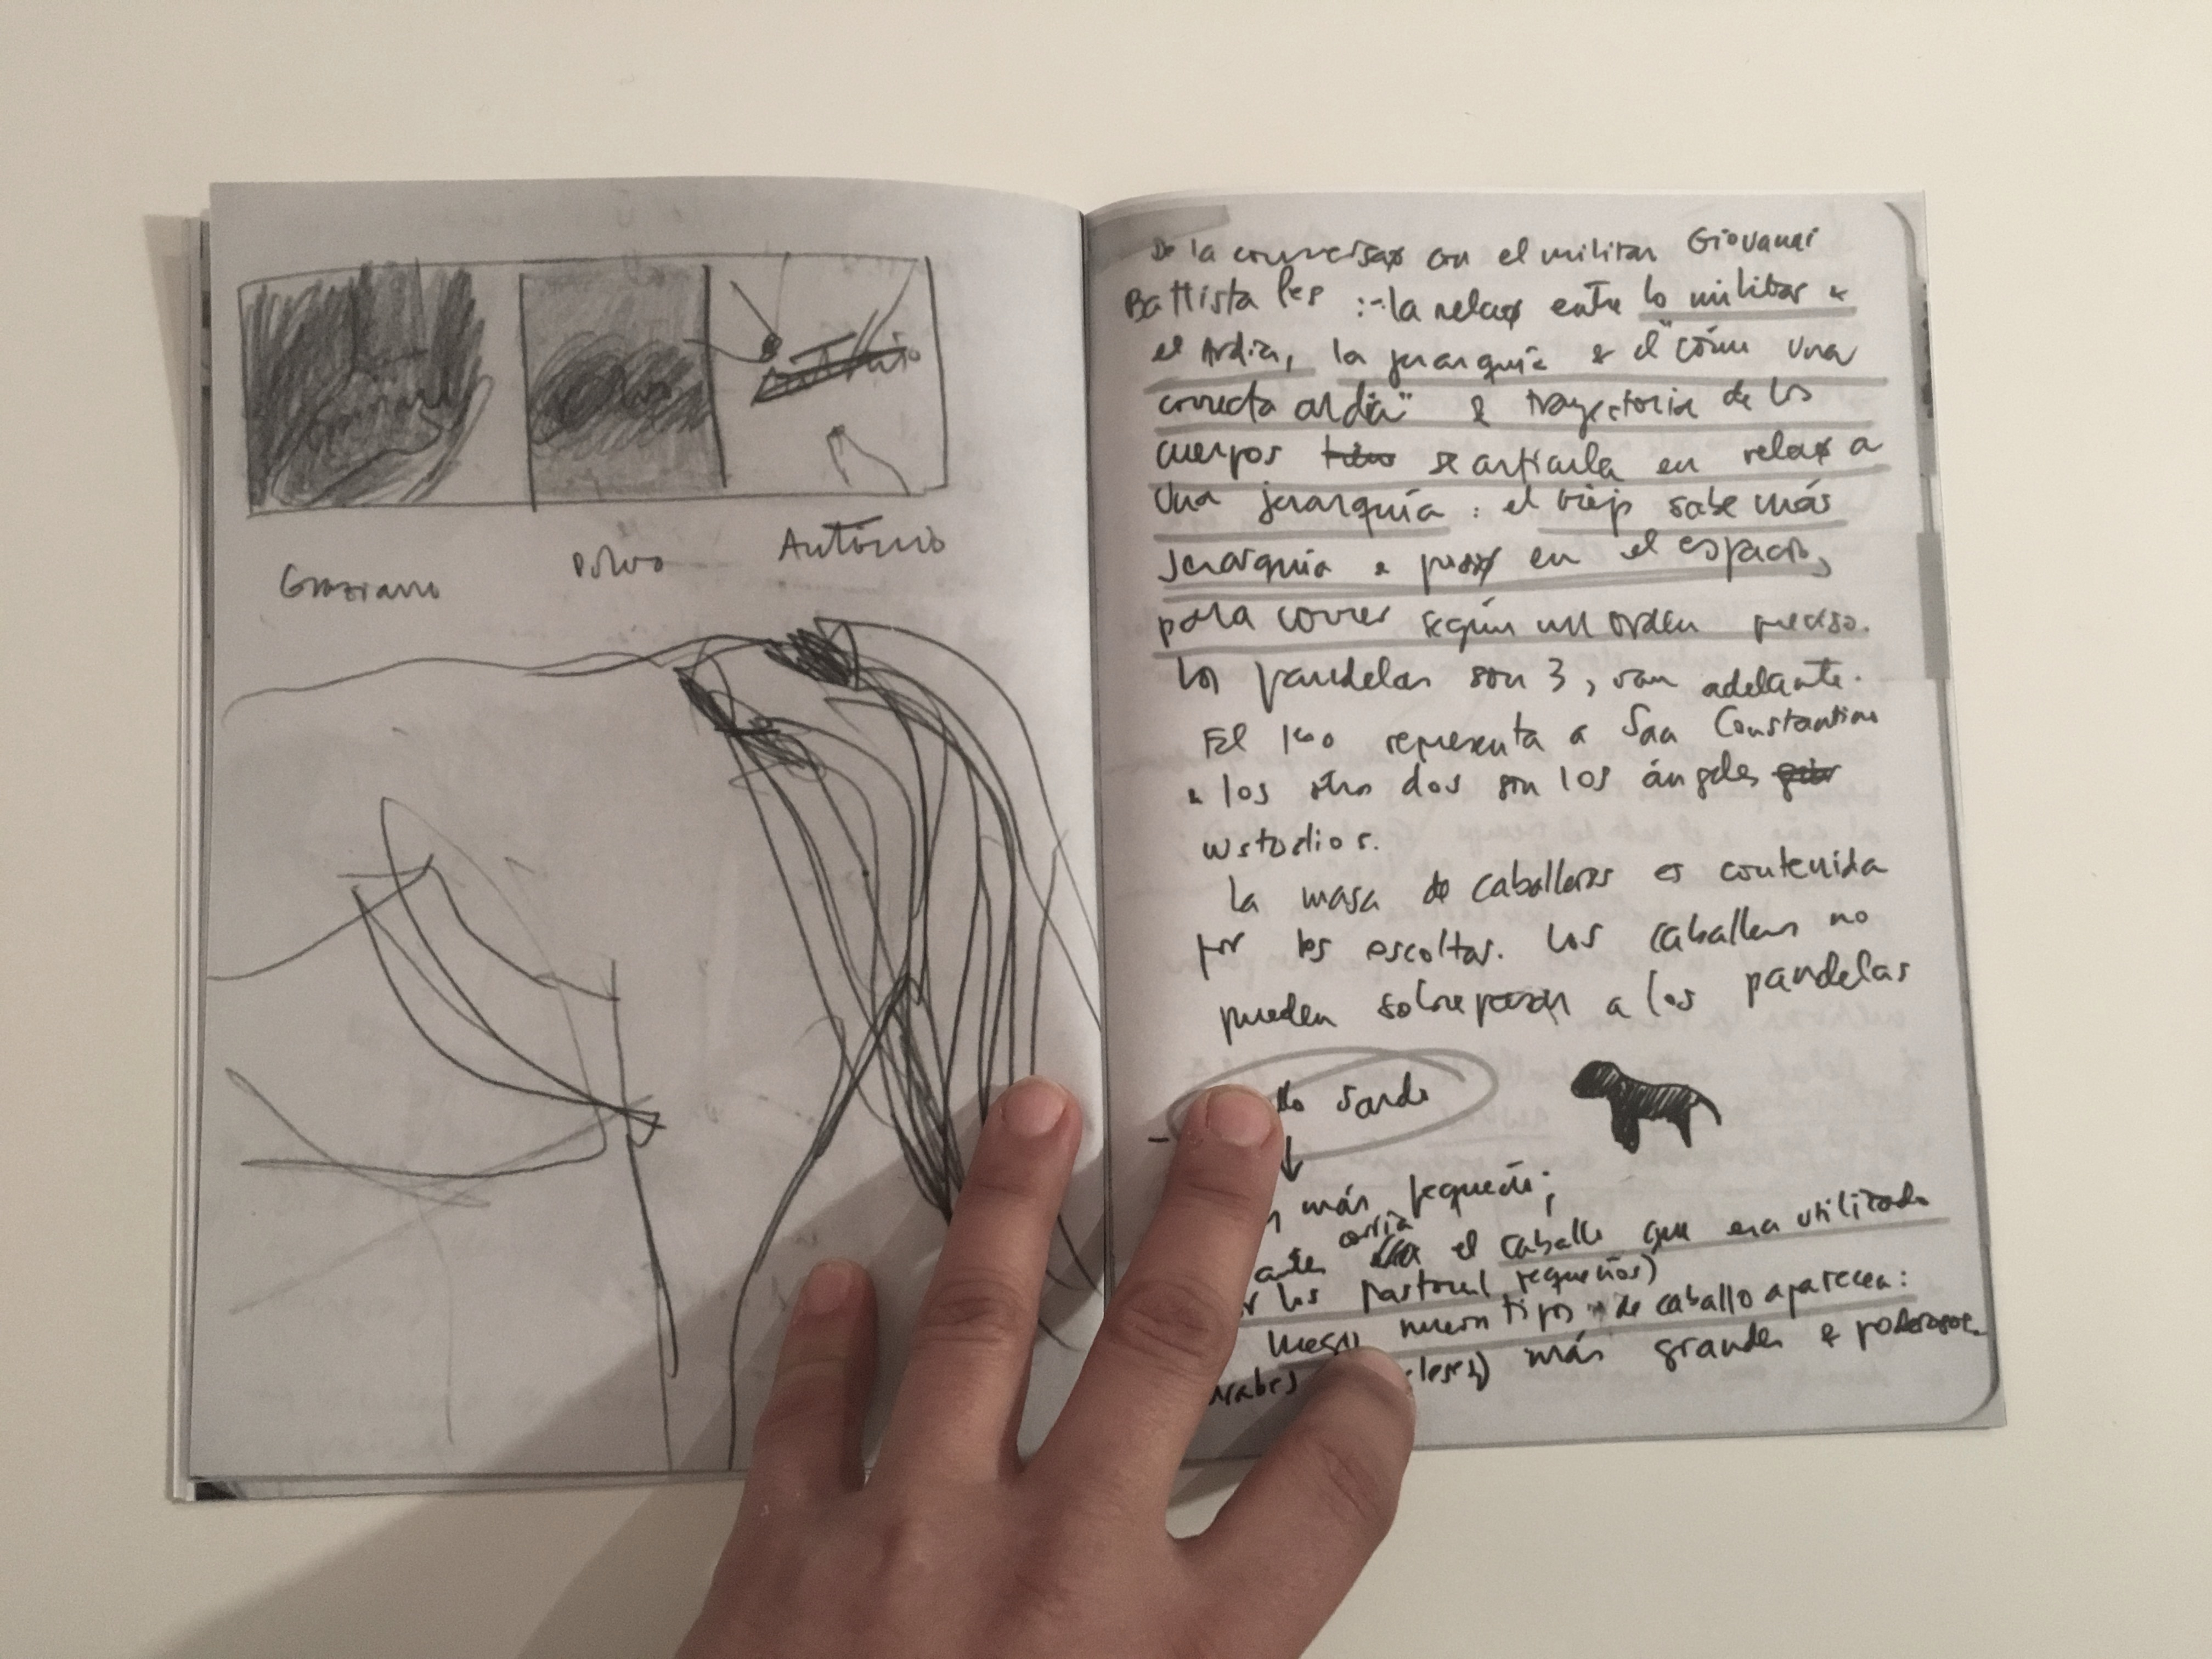 Graziano
Polvo
Antonio
De la conversaø con el militar Giovanni
Battista :-la relaø entre lo militar &
el Ardia, la jerarquía & el "cómo una
correcta ardia" & trayectoria de los
cuerpos se articula en relaø a
una jerarquía : el viejo sabe más
Jerarquía & posiø en el espacio,
para correr según un orden preciso.
Los pandelas son 3, van adelante.
El 1ero representa a San Constantino
& los otros dos son los ángeles
custodios.
La masa de caballeros es contenida
por las escoltas. Los caballeros no
pueden sobrepasar a los pandelas
llo sardo
más pequeño;
corría
antes el caballo que era utilizado
los pastores pequeños)
luego nuevos tipos de caballo aparecen:
leses) más grandes & poderosos.